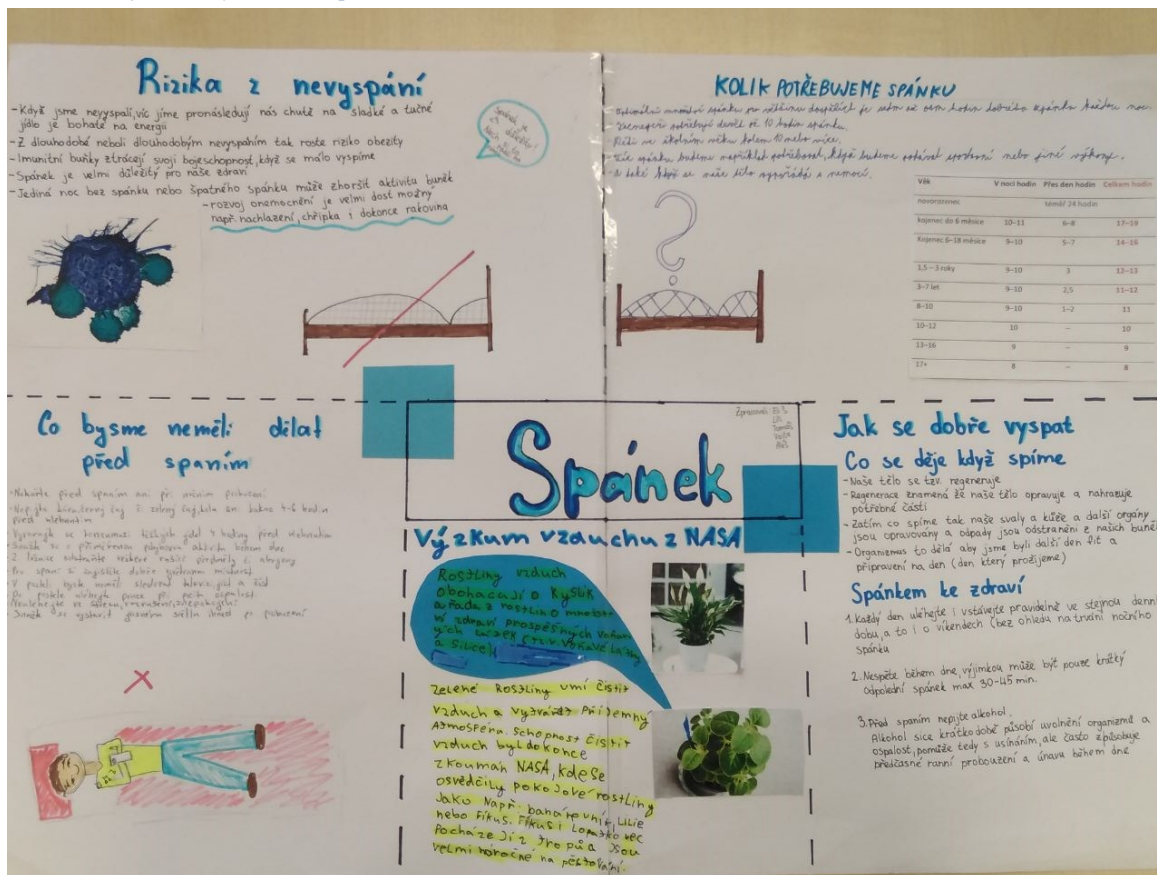 Rizika z nevyspání
-Když jsme nevyspalí,víc jíme pronásledují nás chutě na sladké a tučné
jídlo je bohaté na energii
-Z dlouhodobé neboli dlouhodobým nevyspaním tak roste riziko obezity
-Imunitní buňky ztrácejí svoji bojeschopnost,když se málo vyspíme
-Spánek je velmi důležitý pro naše zdraví
-Jediná noc bez spánku nebo špatného spánku může zhoršit aktivitu buněk
-rozvoj onemocnění je velmi dost možný
např. nachlazení,chřipka i dokonce rakovina
Spánek je
důležitý!
KOLIK POTŘEBUJEME SPÁNKU
Optimální množství spánku pro většinu dospělých je sedm až osm hodin dobrého spánku každou noc.
Teenageři potřebují devět až 10 hodin spánku.
Děti ve školním věku kolem 10 nebo více.
Více spánku budeme například potřebovat, když budeme podávat sportovní nebo jiné výkony.
A také když se naše tělo vypořádá s nemocí.
Věk V noci hodin Přes den hodin Celkem hodin
novorozenec téměř 24 hodin
kojenec do 6 měsíce 10–11 6–8 17–19
Kojenec 6–18 měsíce 9–10 5–7 14–16
1,5 – 3 roky 9–10 3 12–13
3–7 let 9–10 2,5 11–12
8–10 9–10 1–2 11
10–12 10 – 10
13–16 9 – 9
17+ 8 – 8
Co bysme neměli dělat
před spaním
-Nekuřte před spaním ani při nočním probuzení
-Nepijte kávu,černý čaj či zelený čaj,kolu
před ulehnutím
těžkých jídel 4 hodiny před ulehnutím
přiměřenou pohybovou aktivitu během dne
Z ložnice odstraňte veškeré rušící předměty či alergeny
spaní si zajistěte dobře větranou místnost
V posteli bysme neměli sledovat televizi,jíst a číst
Do postele ulehejte pouze při pocitu ospalosti
Neulehejte ve stresu,rozrušení,znepokojení
ihned po probuzení
Spánek
Zpracovali:
Tomáš
Výzkum vzduchu z NASA
Rostliny vzduch
obohacají o kyslík
a řada z rostlin o množství
zdraví prospěšných
a silice)
Zelené Rostliny umí čistit
vzduch a vytvářet Příjemný
Atmosféru. Schopnost čistit
vzduch byl dokonce
zkoumán NASA, kde se
osvědčily pokojové rostliny
Jako Např. banánovník, Lilie
nebo Fikus. Fikus i Lopatkovec
Pocháze Jí z tropů a Jsou
velmi náročné na pěstování.
Jak se dobře vyspat
Co se děje když spíme
-Naše tělo se tzv. regeneruje
-Regenerace znamená že naše tělo opravuje a nahrazuje
potřebné části
-Zatím co spíme tak naše svaly a kůže a další orgány
jsou opravovány a odpady jsou odstraněni z našich buněk
-Organizmus to dělá aby jsme byli další den fit a
připravení na den (den který prožijeme)
Spánkem ke zdraví
1. Každý den uléhejte i vstávejte pravidelně ve stejnou denní
dobu,a to i o víkendech (bez ohledu na trvání nočního
spánku
2.Nespěte během dne,výjimkou může být pouze krátký
odpolední spánek max 30-45 min.
3.Před spaním nepijte alkohol.
Alkohol sice krátkodobě působí uvolnění organizmu a
ospalost,pomůže tedy s usínáním,ale často způsobuje
předčasné ranní probouzení a únavu během dne